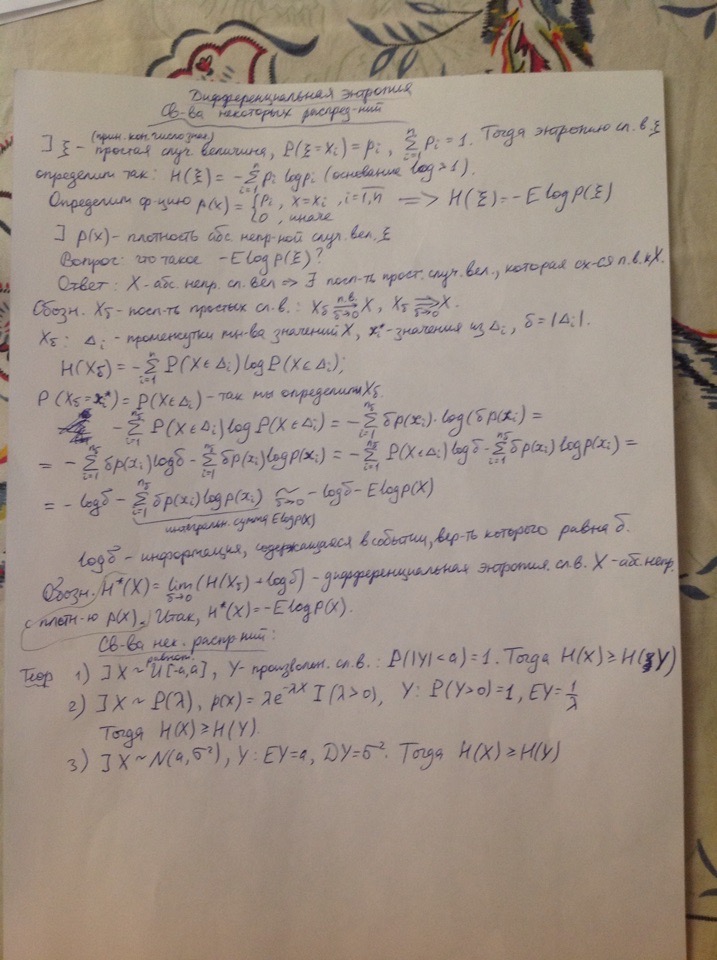 Дифференциальная энтропия
Св-ва некоторых распред-ний
(прин. кон. число знач.)
∃ ξ - простая случ величина, P(ξ=xᵢ) = pᵢ, ∑ᵢ₌₁ⁿ pᵢ = 1. Тогда энтропию сл. в. ξ
определим так: H(ξ) = -∑ᵢ₌₁ⁿ pᵢ log pᵢ (основание log > 1).
Определим ф-цию p(x) = {pᵢ, x = xᵢ, i = 1,n; 0, иначе => H(ξ) = -E log p(ξ)
∃ p(x) - плотность абс. непр-ной случ. вел. ξ
Вопрос: что такое -E log p(ξ)?
Ответ: X - абс. непр. сл. вел => ∃ посл-ть прост. случ. вел., которая сх-ся п.в. к X.
Обозн. X_δ - посл-ть простых сл-в.: X_δ →(п.в., δ→0) X, X_δ ⇒(δ→0) X.
X_δ: Δᵢ - промежутки мн-ва значений X, xᵢ* - значения из Δᵢ, δ = |Δᵢ|.
H(X_δ) = -∑ᵢ₌₁ⁿ P(X∈Δᵢ) log P(X∈Δᵢ);
P(X_δ = xᵢ*) = P(X∈Δᵢ) - так мы определили X_δ.
-∑ᵢ₌₁^{n_δ} P(X∈Δᵢ) log P(X∈Δᵢ) = -∑ᵢ₌₁^{n_δ} δp(xᵢ) · log(δp(xᵢ)) =
= -∑ᵢ₌₁^{n_δ} δp(xᵢ) log δ - ∑ᵢ₌₁^{n_δ} δp(xᵢ) log p(xᵢ) = -∑ᵢ₌₁^{n_δ} P(X∈Δᵢ) log δ - ∑ᵢ₌₁^{n_δ} δp(xᵢ) log p(xᵢ) =
= -log δ - ∑ᵢ₌₁^{n_δ} δp(xᵢ) log p(xᵢ) ~(δ→0) -log δ - E log p(X)
интегральн. сумма E log p(X)
log δ - информация, содержащаяся в событии, вер-ть которого равна δ.
Обозн. H*(X) = lim_{δ→0} (H(X_δ) + log δ) - дифференциальная энтропия. сл. в. X - абс. непр.
с плотн-ю p(x). Итак, H*(X) = -E log p(X).
Св-ва нек. распр-ний:
равном.
Теор 1) ∃ X ~ U[-a,a], Y - произвольн. сл. в.: P(|Y| < a) = 1. Тогда H(X) ≥ H(Y)
2) ∃ X ~ P(λ), p(x) = λe^{-λx} I(λ>0), Y: P(Y>0) = 1, EY = 1/λ
Тогда H(X) ≥ H(Y).
3) ∃ X ~ N(a,σ²), Y: EY = a, DY = σ². Тогда H(X) ≥ H(Y)